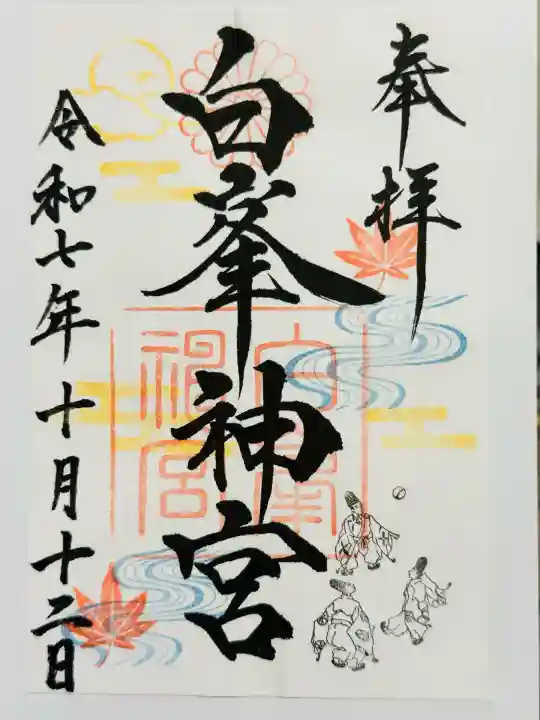 奉拝
白峯神宮
令和七年十月十二日
白峯
神宮